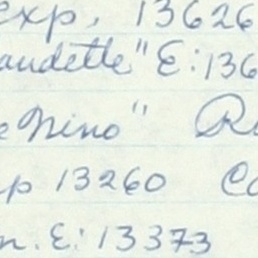 exp. 13626
audette" E: 136
e Nino" R
p 13260 Co
n. E: 13373